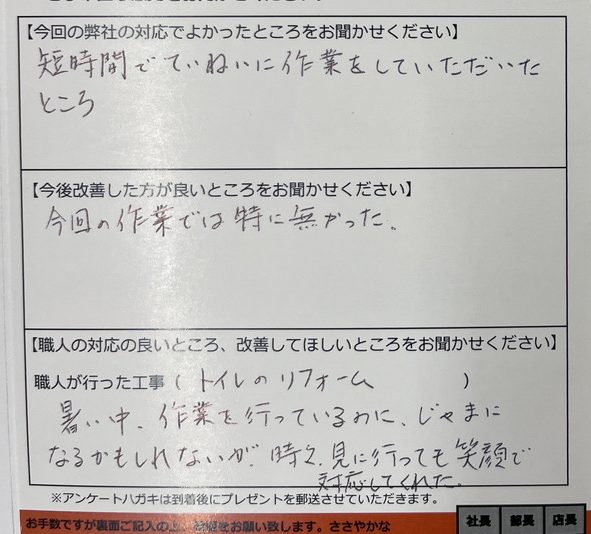 【今回の弊社の対応でよかったところをお聞かせください】
短時間でていねいに作業をしていただいた
ところ
【今後改善した方が良いところをお聞かせください】
今回の作業では特に無かった。
【職人の対応の良いところ、改善してほしいところをお聞かせください】
職人が行った工事（トイレのリフォーム）
暑い中、作業を行っているのに、じゃまに
なるかもしれないが、時々、見に行っても笑顔で
対応してくれた。
※アンケートハガキは到着後にプレゼントを郵送させていただきます。
お手数ですが裏面ご記入の上、をお願い致します。ささやかな
社長 部長 店長